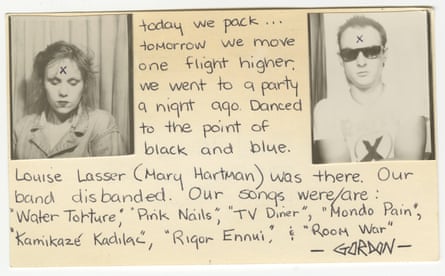 today we pack...
tomorrow we move
one flight higher.
we went to a party
a night ago. Danced
to the point of
black and blue.
Louise Lasser (Mary Hartman) was there. Our
band disbanded. Our songs were/are:
"Water Torture", "Pink Nails", "TV Diner", "Mondo Pain",
"Kamikazé Kadilac", "Rigor Ennui", & "Room War"
- GORDON -
X
X
X